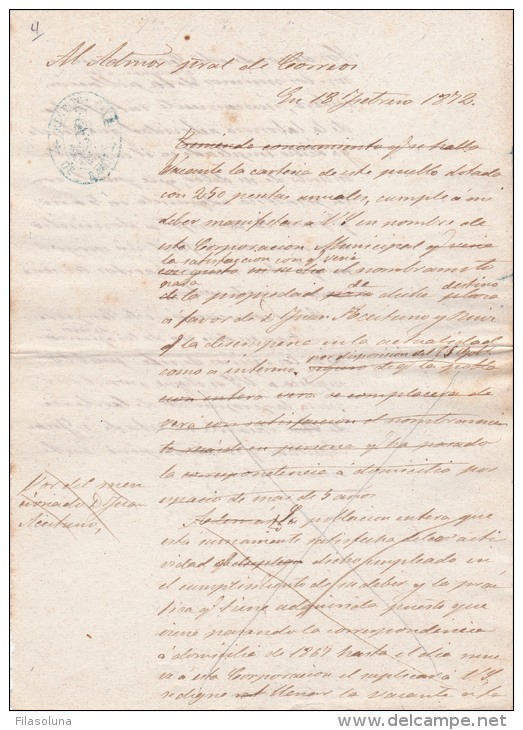 4
Al Admor gral de Correos
En 18 Febrero 1872.
Teniendo conocimiento q se halla
Vacante la cartera de este pueblo dotada
con 250 pesetas anuales, cumple á mi
deber manifestar á V.S. en nombre de
esta Corporacion Municipal q veria
la satisfaccion con q veria
con gusto el nombramto
de la propiedad de dicho destino
á favor de D Juan Aceituno y Ruiz
q la desempeña en la actualidad
por disposicion del
como interino
con entera vera se complaceria de
vera con satisfaccion el nombramien
to de su persona y ha
la correspondencia á domicilio por
espacio de mas de 5 años
Por del men
cionado D Juan
Aceituno,
poblacion entera que
está sumamente satisfecha de la acti
vidad dicho empleado en
el cumplimiento de su deber y la prac
tica q tiene adquirida puesto que
viene la correspondencia
á domicilio de 1867 hasta el dia mue
ve a esta Corporacion el suplicar á V.S.
se digne llenar la vacante
Filasoluna
www.delcampe.net